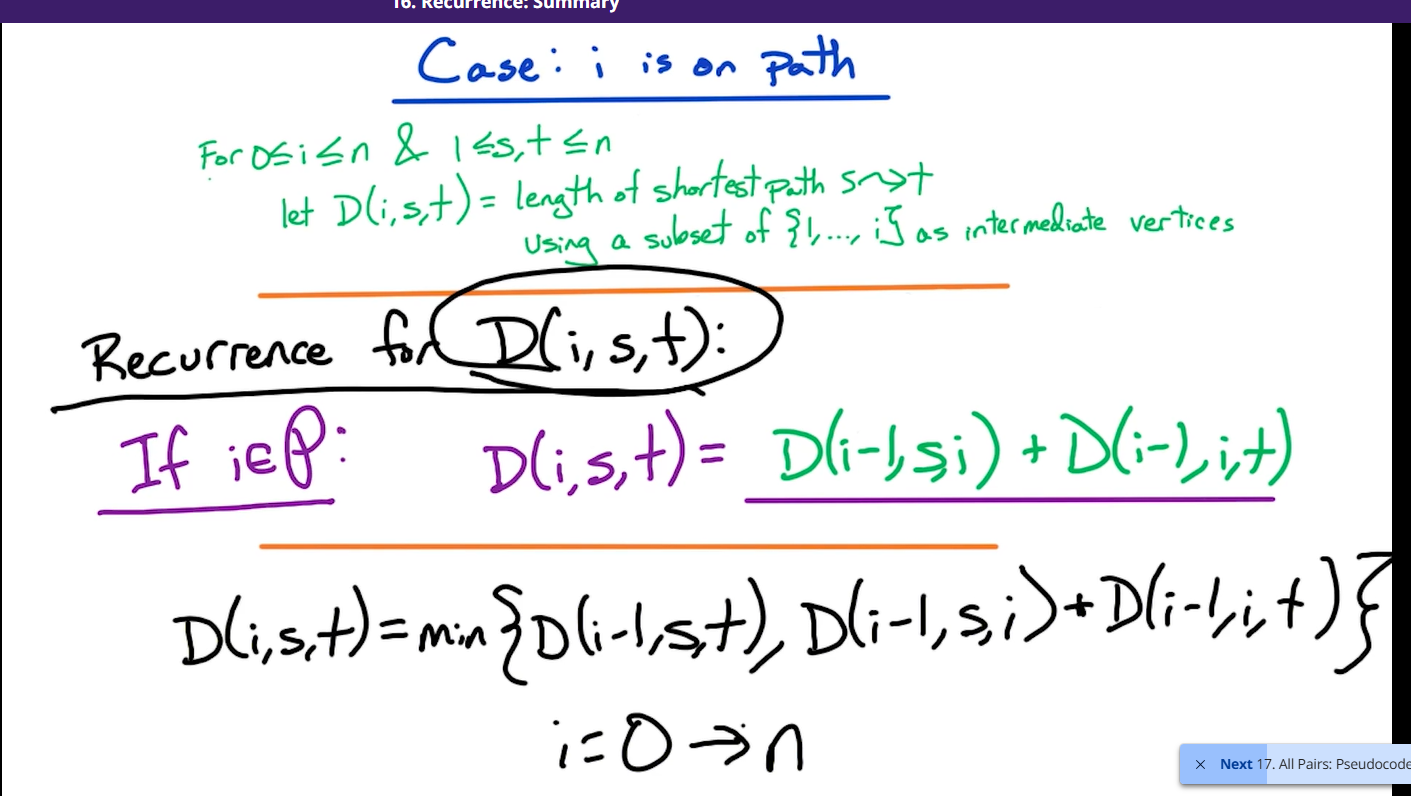 16. Recurrence: Summary
Case: i is on path
For 0≤i≤n & 1≤s,t≤n
let D(i,s,t) = length of shortest path s⇝t
using a subset of {1,..., i} as intermediate vertices
Recurrence for D(i,s,t):
If i∈P: D(i,s,t) = D(i-1,s,i) + D(i-1,i,t)
D(i,s,t) = min{D(i-1,s,t), D(i-1,s,i)+D(i-1,i,t)}
i=0→n
× Next 17. All Pairs: Pseudocode